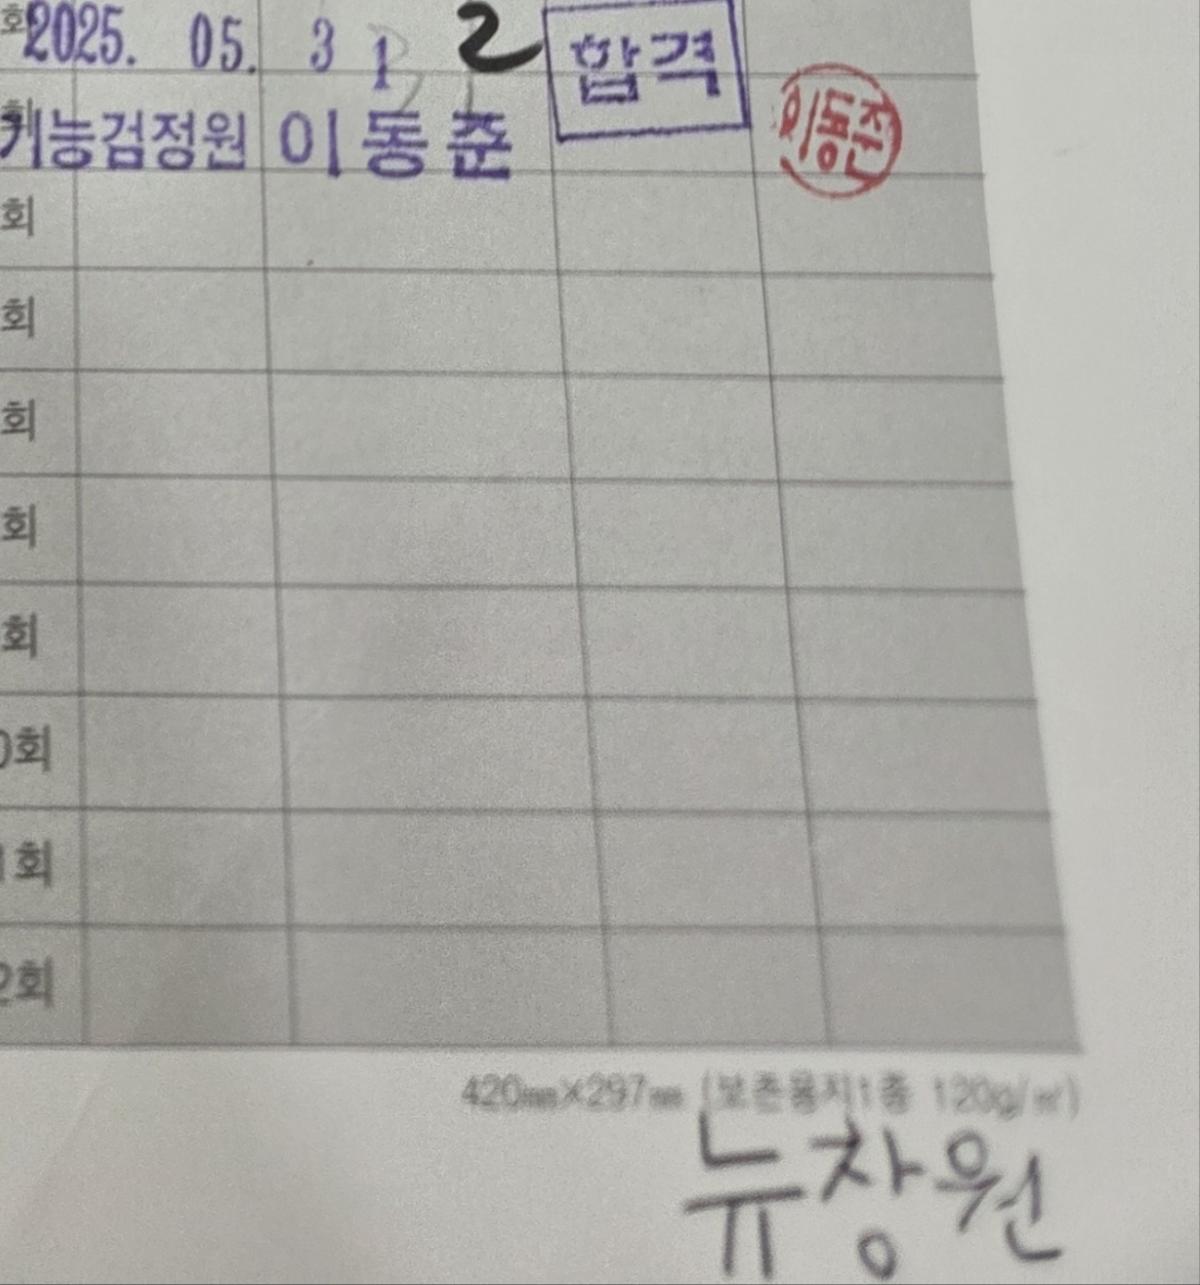 2025. 05. 31 2 합격
기능검정원 이동준 이동준
회
회
회
회
회
0회
1회
2회
420㎜×297㎜ (보존용지1종 120g/㎡)
뉴창원